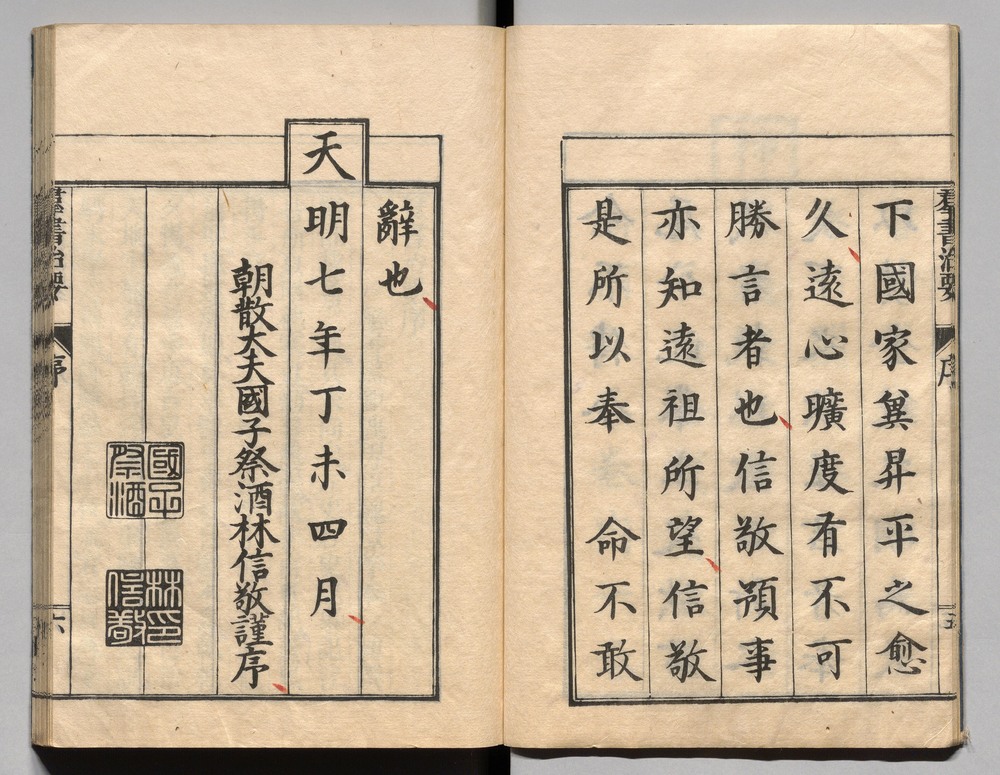 下國家冀昇平之愈
久遠心曠度有不可
勝言者也信敬預事
亦知遠祖所望信敬
是所以奉　命不敢
辭也
天明七年丁未四月
朝散大夫國子祭酒林信敬謹序
國子祭酒
林信敬印
羣書治要
序
五
羣書治要
序
六